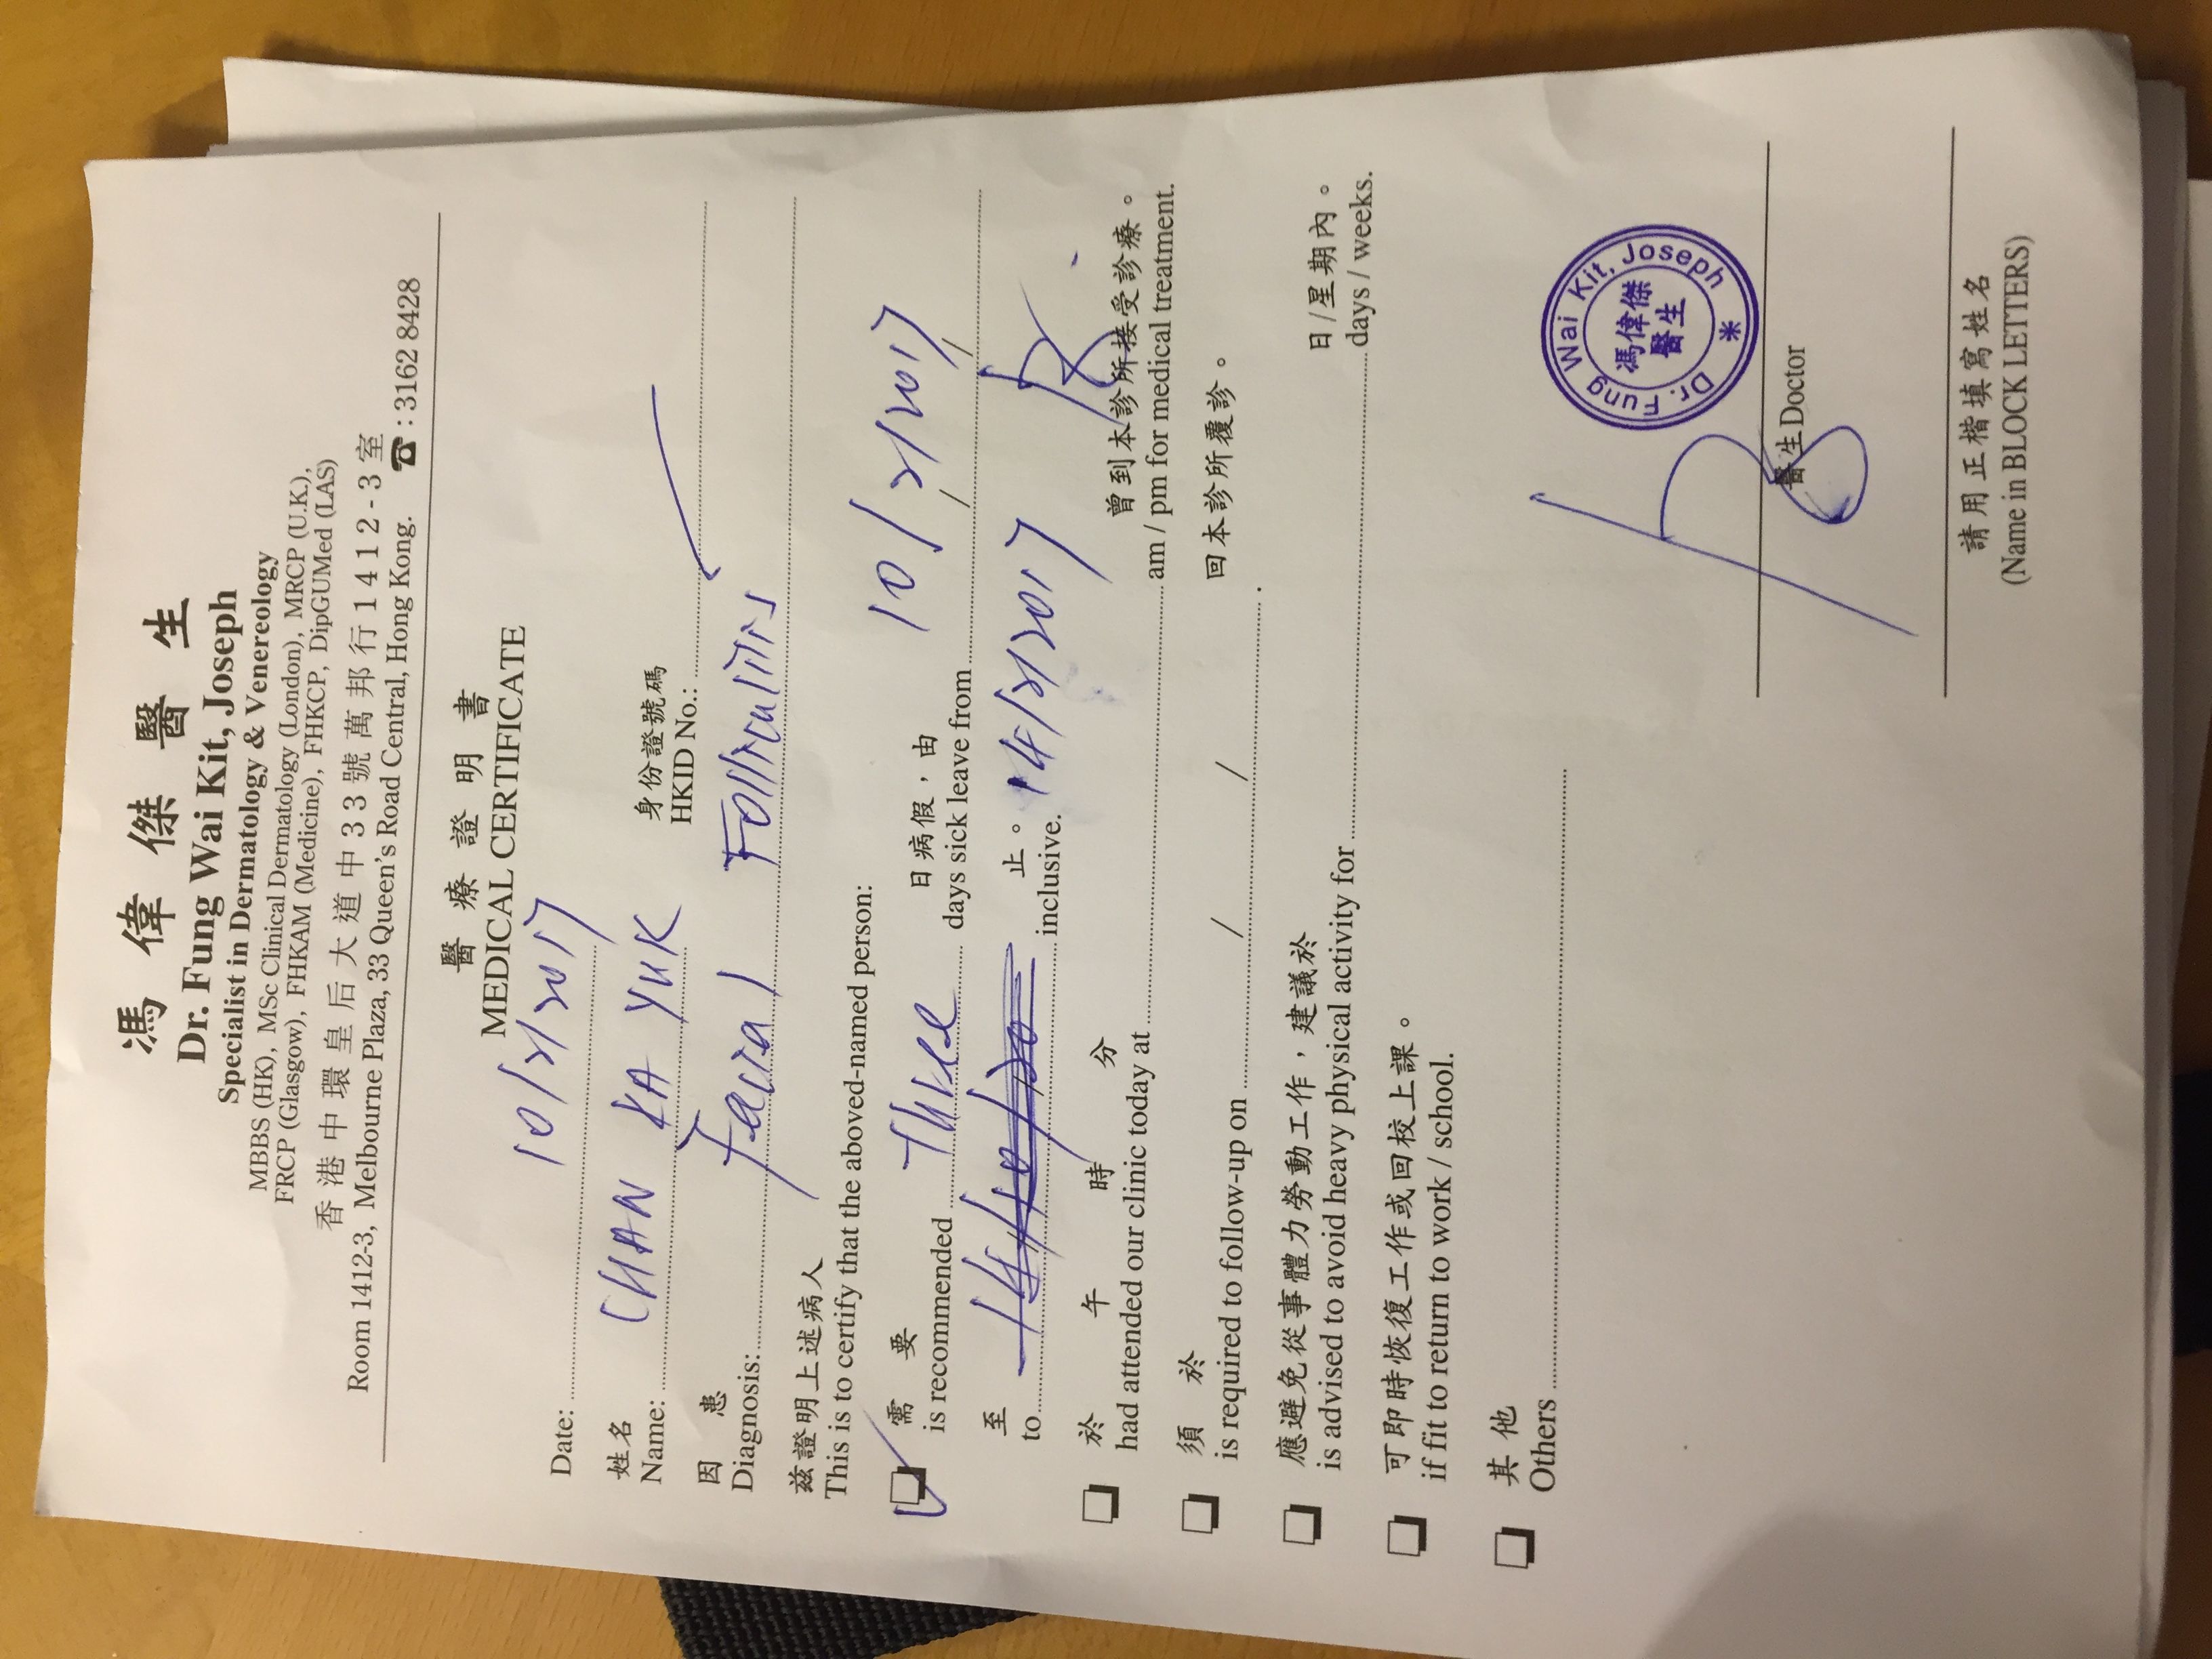 馮偉傑醫生
Dr. Fung Wai Kit, Joseph
Specialist in Dermatology & Venereology
MBBS (HK), MSc Clinical Dermatology (London), MRCP (U.K.),
FRCP (Glasgow), FHKAM (Medicine), FHKCP, DipGUMed (LAS)
香港中環皇后大道中33號萬邦行1412-3室
Room 1412-3, Melbourne Plaza, 33 Queen's Road Central, Hong Kong. ☎ : 3162 8428
醫療證明書
MEDICAL CERTIFICATE
Date: 10/2/2017
姓名 身份證號碼
Name: CHAN KA YUK HKID No.:
因患
Diagnosis: Facial Folliculitis
茲證明上述病人
This is to certify that the aboved-named person:
需要 日病假，由
is recommended Three days sick leave from 10/2/2017
至 止。
to 14/10/20 inclusive. 14/2/2017
於 午 時 分 曾到本診所接受診療。
had attended our clinic today at am / pm for medical treatment.
須於 回本診所覆診。
is required to follow-up on / / .
應避免從事體力勞動工作，建議於 日/星期內。
is advised to avoid heavy physical activity for days / weeks.
可即時恢復工作或回校上課。
if fit to return to work / school.
其他
Others
Dr. Fung Wai Kit, Joseph
馮偉傑
醫生
醫生 Doctor
請用正楷填寫姓名
(Name in BLOCK LETTERS)